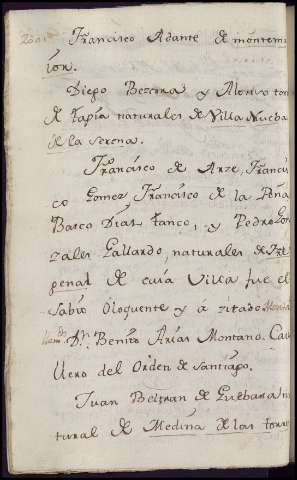 Francisco Adante de montem
ion.
Diego Bezerra y Alonso tor
de tapia naturales de Villa Nueba
de la Serena.
Francisco de Arze, Francis
co Gomez, Francisco de la Peña
Basco Dias tanco, y Pedro Gon
zales Gallardo, naturales de Fre
genal de cuia Villa fue el
Sabio Oloquente y á zitado
Dn. Benito Arias Montano. Cava
llero del Orden de Santiago.
Juan Beltran de Guebara na
tural de Medina de las torres